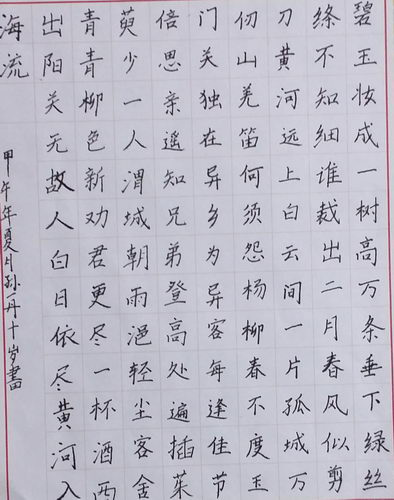 碧玉妆成一树高万条垂下绿丝
绦不知细谁裁出二月春风似剪
刀黄河远上白云间一片孤城万
仞山羌笛何须怨杨柳春不度玉
门关独在异乡为异客每逢佳节
倍思亲遥知兄弟登高处遍插茱
萸少一人渭城朝雨浥轻尘客舍
青青柳色新劝君更尽一杯酒西
出阳关无故人白日依尽黄河入
海流
甲午年夏月孙一丹十岁書